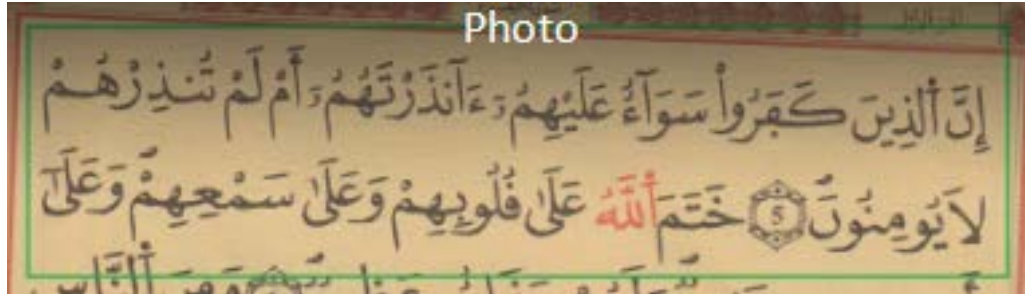 Photo
إِنَّ ٱلذِينَ كَفَرُواْ سَوَآءٌ عَلَيْهِمُۥٓ ءَآنذَرْتَهُمُۥٓ أَمْ لَمْ تُنذِرْهُمْ
لَا يُومِنُونَ 5 خَتَمَ ٱللَّهُ عَلَىٰ قُلُوبِهِمْ وَعَلَىٰ سَمْعِهِمْ وَعَلَىٰٓ